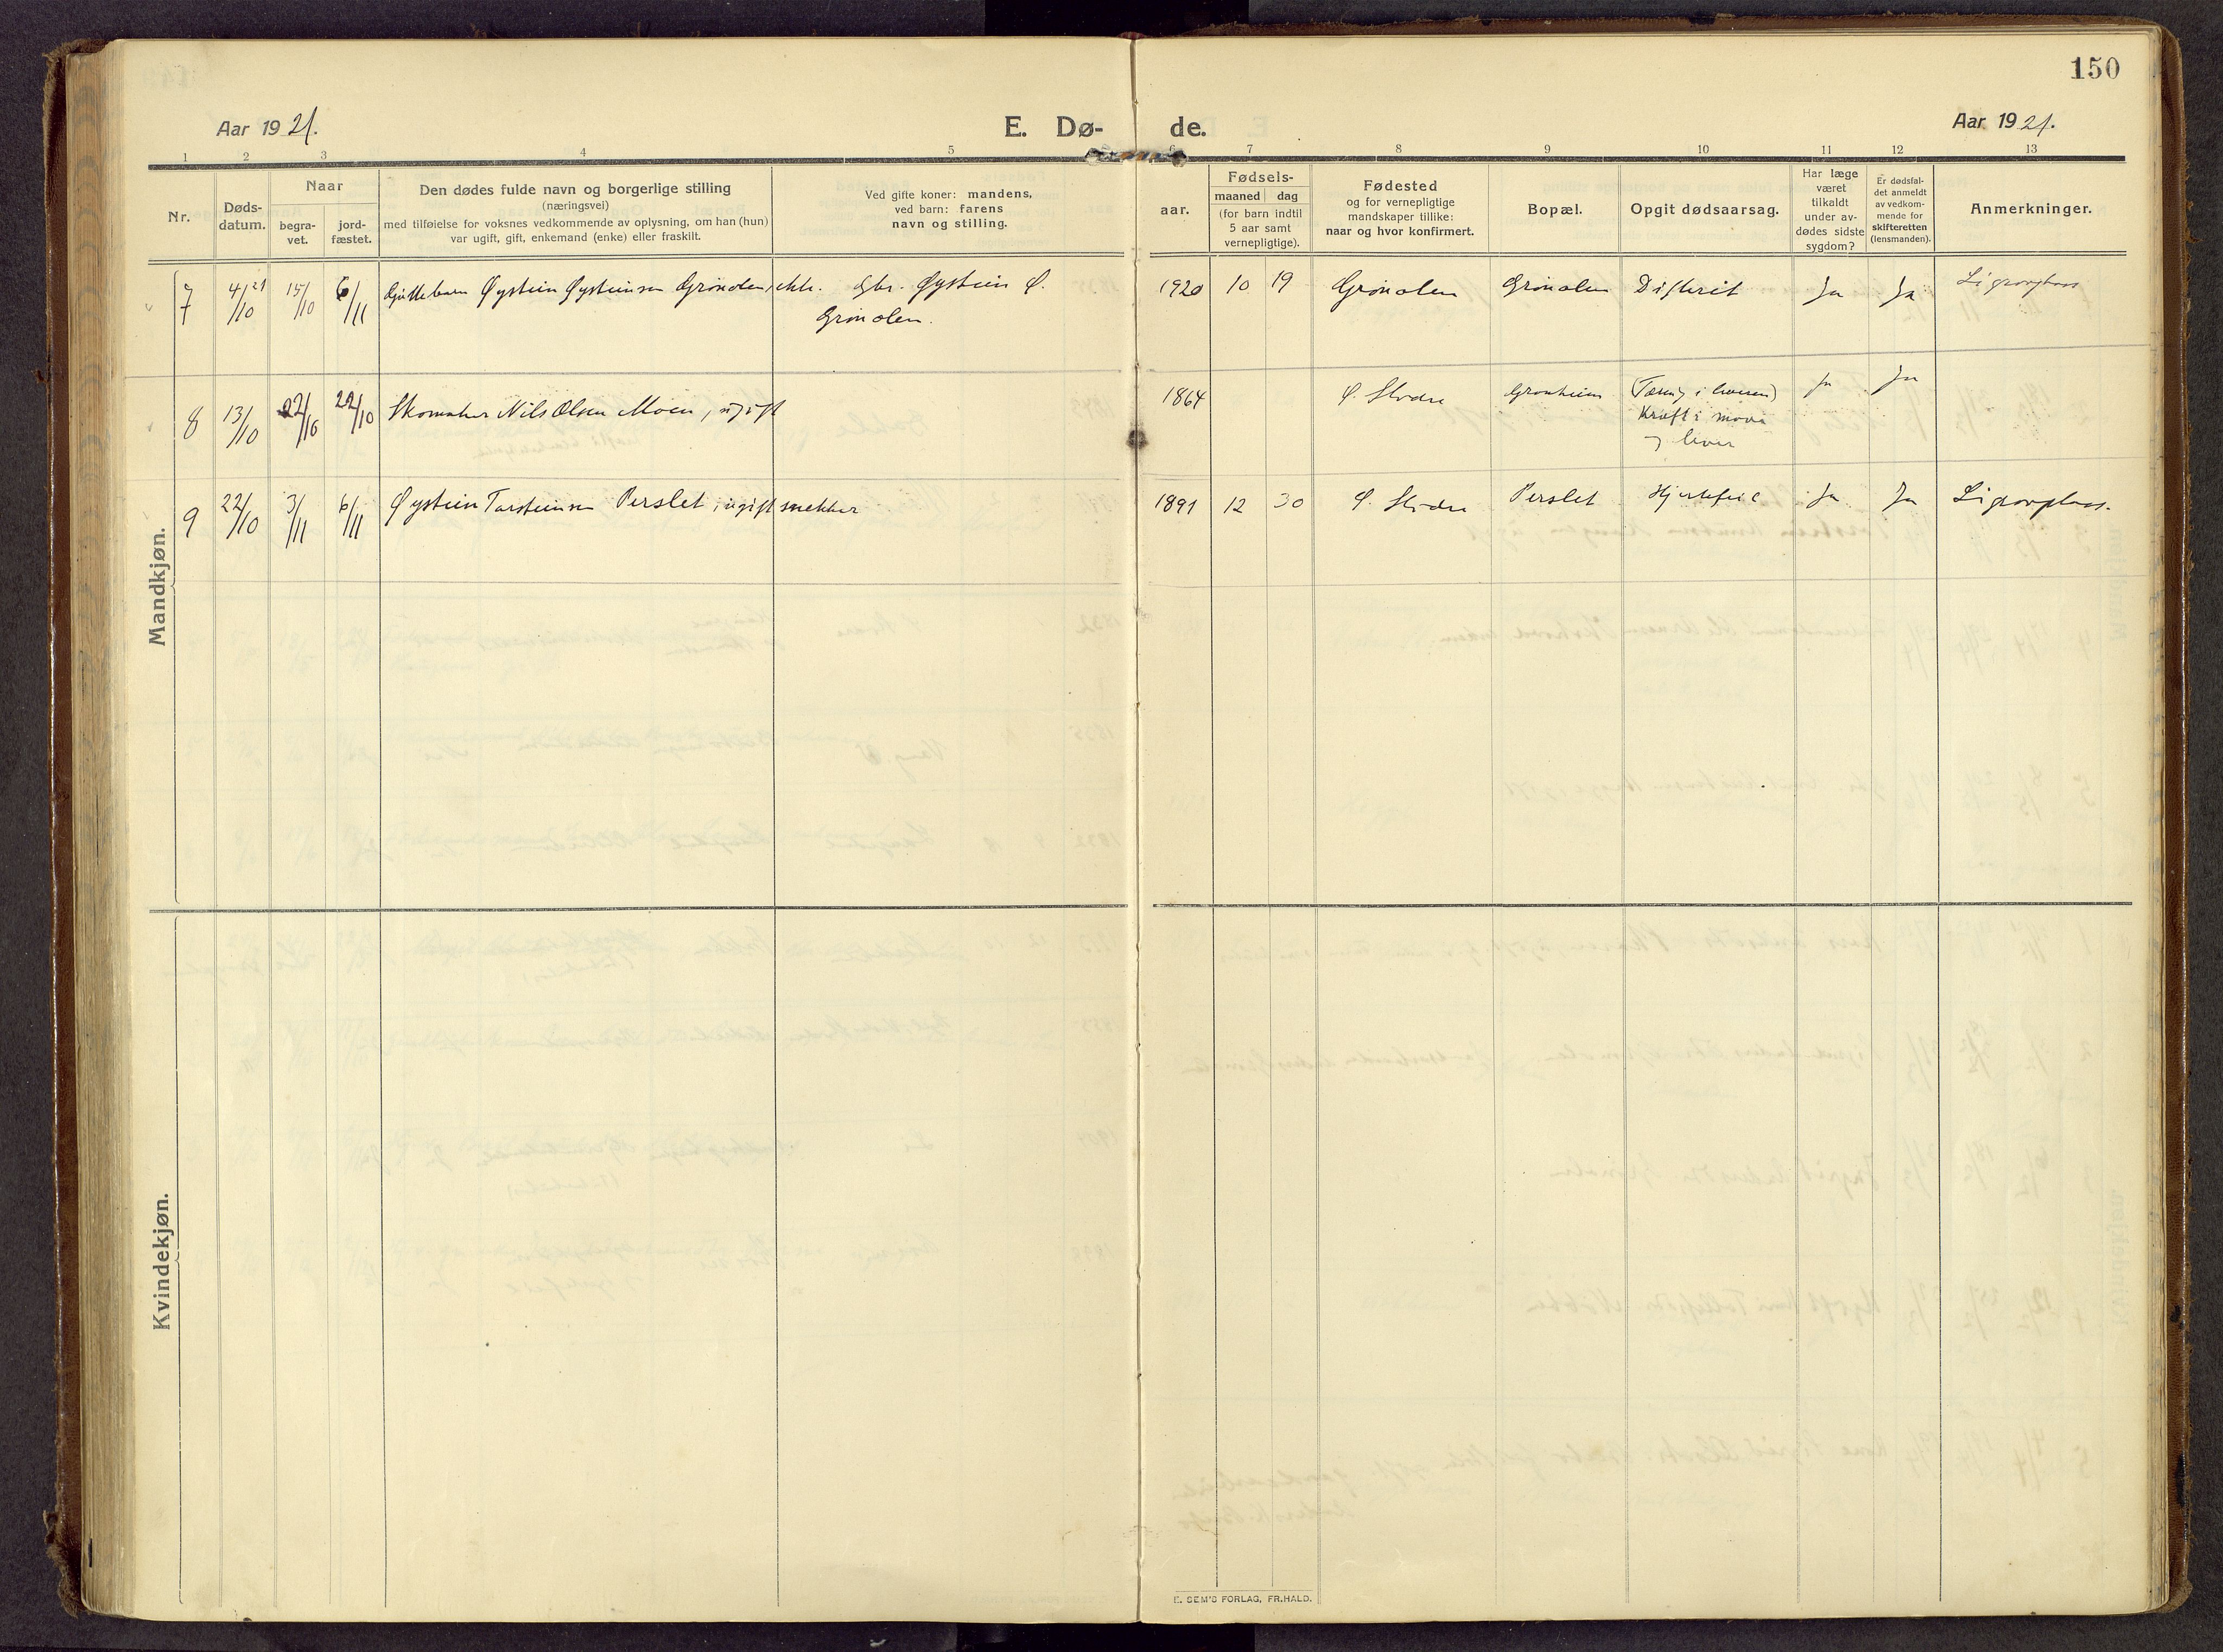 150
Aar 1921.
E. Dø-
de.
Aar 1921.
1 2 3 4 5 6 7 8 9 10 11 12 13
Nr.
Døds-
datum.
Naar
begra-
vet.
jord-
fæstet.
Den dødes fulde navn og borgerlige stilling
(næringsvei)
med tilføielse for voksnes vedkommende av oplysning, om han (hun)
var ugift, gift, enkemand (enke) eller fraskilt.
Ved gifte koner: mandens,
ved barn: farens
navn og stilling.
aar.
Fødsels-
maaned dag
(for barn indtil
5 aar samt
vernepligtige).
Fødested
og for vernepligtige
mandskaper tillike:
naar og hvor konfirmert.
Bopæl.
Opgit dødsaarsag.
Har læge
været
tilkaldt
under av-
dødes sidste
sygdom?
Er dødsfal-
det anmeldt
av vedkom-
mende for
skifteretten
(lensmanden).
Anmerkninger.
Mandkjøn.
7 4/10 21 15/10 6/11 Guttebarn Øystein Øysteinsen Grønolen, ekte. Gbr. Øystein Ø. 1920 10 19 Grønolen Grønolen Difterit Ja Ja Li gravplass
Grønolen.
8 13/10 22/10 22/10 Skomaker Nils Olsen Moen, ugift 1864 Ø. Slidre (Tæring i leveren) Ja Ja
Kræft i mave
og lever
9 22/10 3/11 6/11 Øystein Torsteinsen Perslet, ugift snekker 1891 12 30 Ø. Slidre Perslet Hjertefeil Ja Ja Li gravplass.
Kvindekjøn.
E. SEM'S FORLAG, FR.HALD.